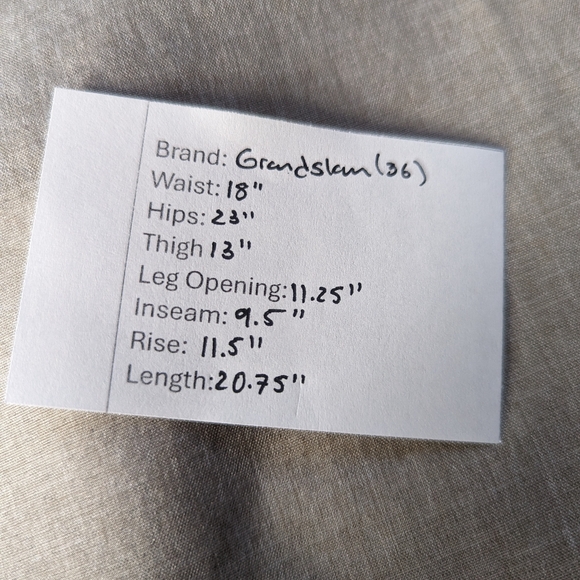 Brand: Grandslam (36)
Waist: 18"
Hips: 23"
Thigh 13"
Leg Opening: 11.25"
Inseam: 9.5"
Rise: 11.5"
Length: 20.75"